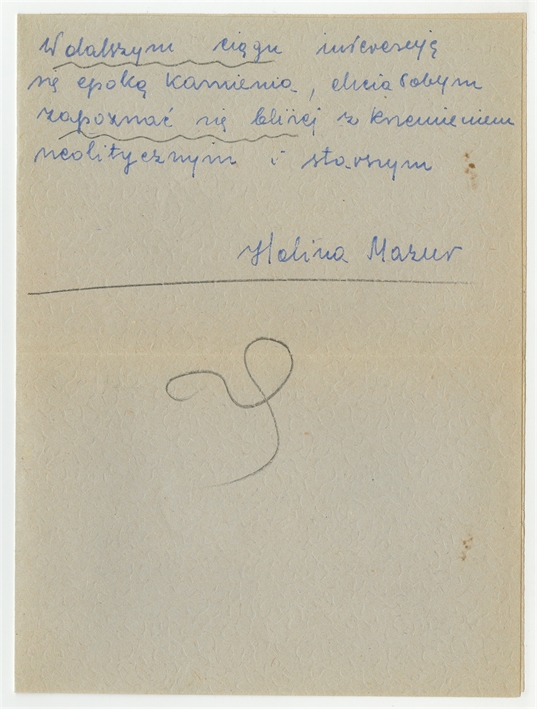 W dalszym ciągu interesuję
się epoką kamienia, chciałobym
zapoznać się bliżej z krzemieniem
neolitycznym i starszym
Halina Mazur